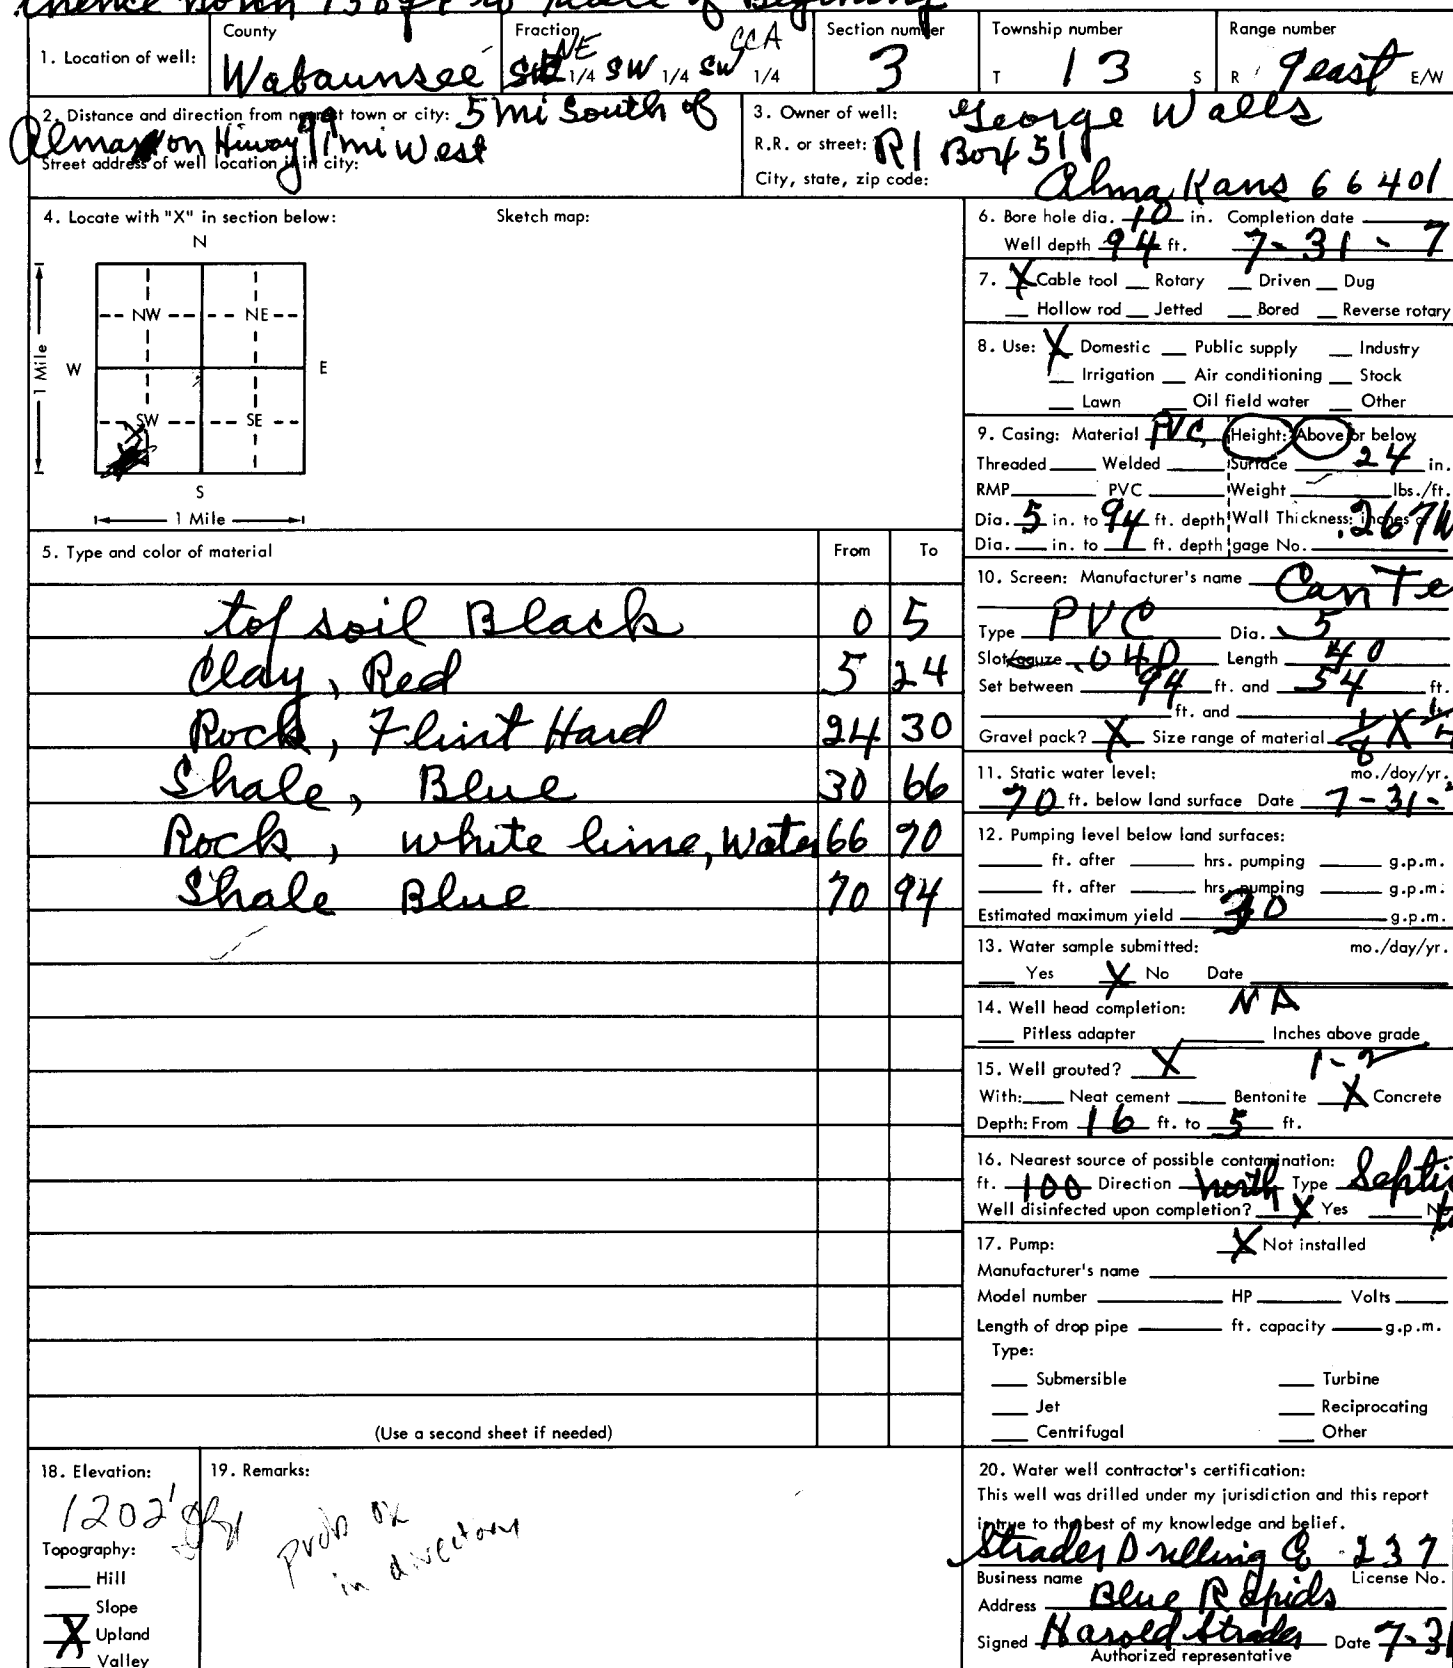 thence North 130 ft to place of Beginning
County Fraction Section number Township number Range number
1. Location of well: Wabaunsee NE 1/4 SW 1/4 SW 1/4 CCA 3 T 13 S R 9 east E/W
2. Distance and direction from nearest town or city: 5 mi South of
Alma on Hiway 99 1 mi West
Street address of well location if in city:
3. Owner of well: George Walls
R.R. or street: R1 Box 51
City, state, zip code: Alma, Kans 66401
4. Locate with "X" in section below: Sketch map:
N
NW NE
W E
SW SE
S
1 Mile
1 Mile
5. Type and color of material From To
top soil Black 0 5
Clay, Red 5 24
Rock, Flint Hard 24 30
Shale, Blue 30 66
Rock, white lime, Water 66 70
Shale Blue 70 94
(Use a second sheet if needed)
6. Bore hole dia. 10 in. Completion date
Well depth 94 ft. 7-31-7
7. X Cable tool Rotary Driven Dug
Hollow rod Jetted Bored Reverse rotary
8. Use: X Domestic Public supply Industry
Irrigation Air conditioning Stock
Lawn Oil field water Other
9. Casing: Material PVC Height: Above or below
Threaded Welded Surface 24 in.
RMP PVC Weight lbs./ft.
Dia. 5 in. to 94 ft. depth Wall Thickness: inches or
Dia. in. to ft. depth gage No. .267
10. Screen: Manufacturer's name CanTe
Type PVC Dia. 5
Slot/gauze .040 Length 40
Set between 94 ft. and 54 ft.
ft. and
Gravel pack? X Size range of material 1/8 X
11. Static water level: mo./day/yr.
70 ft. below land surface Date 7-31-
12. Pumping level below land surfaces:
ft. after hrs. pumping g.p.m.
ft. after hrs. pumping g.p.m.
Estimated maximum yield 30 g.p.m.
13. Water sample submitted: mo./day/yr.
Yes X No Date
14. Well head completion: NA
Pitless adapter Inches above grade
15. Well grouted? X 1-2
With: Neat cement Bentonite X Concrete
Depth: From 16 ft. to 5 ft.
16. Nearest source of possible contamination:
ft. 100 Direction North Type Septi
Well disinfected upon completion? X Yes No
17. Pump: X Not installed
Manufacturer's name
Model number HP Volts
Length of drop pipe ft. capacity g.p.m.
Type:
Submersible Turbine
Jet Reciprocating
Centrifugal Other
18. Elevation:
1202'
Topography:
Hill
Slope
X Upland
Valley
19. Remarks:
prob ok
in directory
20. Water well contractor's certification:
This well was drilled under my jurisdiction and this report
is true to the best of my knowledge and belief.
Strader Drilling 237
Business name License No.
Address Blue Rapids
Signed Harold Strader Date 7-31
Authorized representative